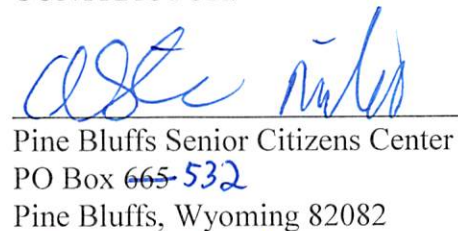 Pine Bluffs Senior Citizens Center
PO Box 665 532
Pine Bluffs, Wyoming 82082